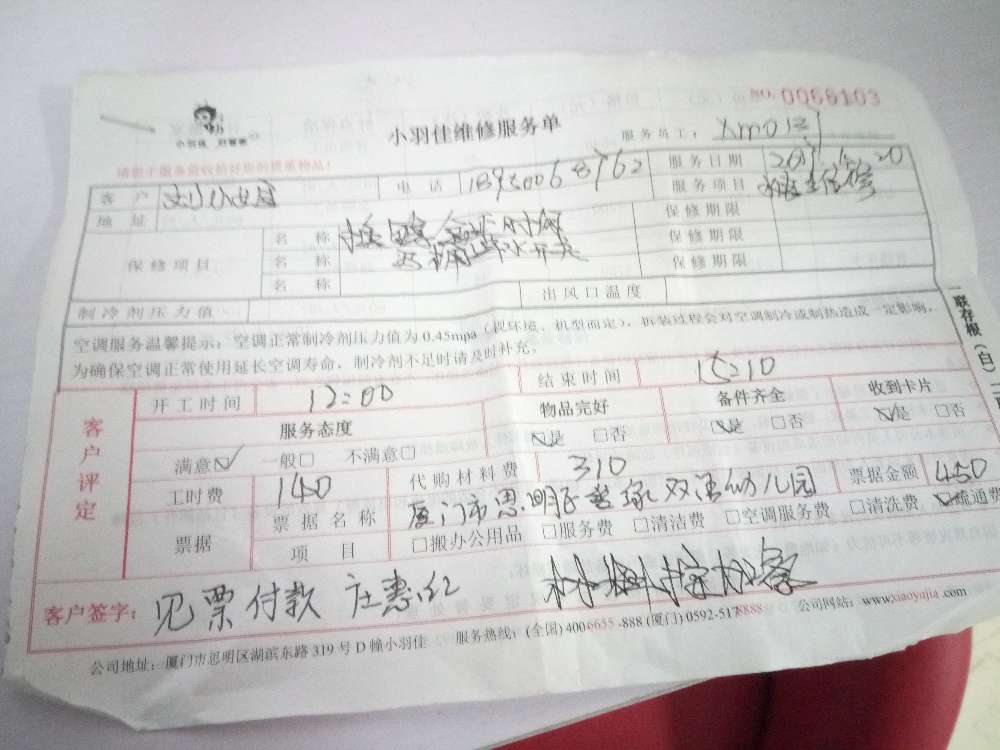 NO. 0066103
小羽佳维修服务单
服务员工:
请您于服务前收拾好您的贵重物品!
客 户 电 话 服务日期
地 址 服务项目
保修项目 名 称 保修期限
名 称 保修期限
名 称 保修期限
制冷剂压力值 出风口温度
空调服务温馨提示:空调正常制冷剂压力值为 0.45mpa(视环境、机型而定),拆装过程会对空调制冷或制热造成一定影响,
为确保空调正常使用延长空调寿命,制冷剂不足时请及时补充。
一联存根(白)
客户评定
开工时间 12:00 结束时间 15:10
服务态度 物品完好 备件齐全 收到卡片
满意☑ 一般□ 不满意□ ☑是 □否 ☑是 □否 ☑是 □否
工时费 140 代购材料费 310 票据金额 450
票据 票据名称 厦门市思明区 幼儿园
项 目 □搬办公用品 □服务费 □清洁费 □空调服务费 □清洗费 ☑疏通费
客户签字: 见票付款 庄惠红
公司地址:厦门市思明区湖滨东路 319 号 D 幢小羽佳 服务热线:(全国) 4006655 -888 (厦门) 0592-5178888 公司网站:www.xiaoyujia.com